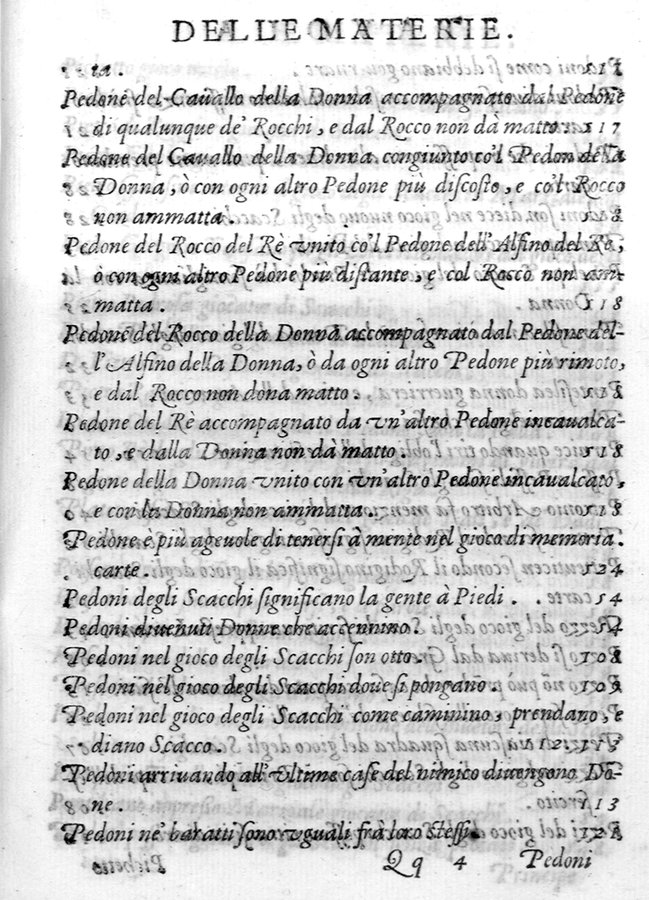 DELLE MATERIE.
ta. 117
Pedone del Cauallo della Donna accompagnato dal Pedone
di qualunque de' Rocchi, e dal Rocco non dà matto. 117
Pedone del Cauallo della Donna congiunto co'l Pedon della
Donna, ò con ogni altro Pedone più discosto, e co'l Rocco
non ammatta. 118
Pedone del Rocco del Rè vnito co'l Pedone dell' Alfino del Rè,
ò con ogni altro Pedone più distante, e col Rocco non am-
matta. 118
Pedone del Rocco della Donna accompagnato dal Pedone del-
l' Alfino della Donna, ò da ogni altro Pedone più rimoto,
e dal Rocco non dona matto. 118
Pedone del Rè accompagnato da vn'altro Pedone incaualca-
to, e dalla Donna non dà matto. 118
Pedone della Donna vnito con vn'altro Pedone incaualcato,
e con la Donna non ammatta. 118
Pedone è più ageuole di tenersi à mente nel gioco di memoria.
carte. 124
Pedoni degli Scacchi significano la gente à Piedi. 54
Pedoni diuenuti Donne che accennino. 54
Pedoni nel gioco degli Scacchi son otto. 108
Pedoni nel gioco degli Scacchi doue si pongano. 109
Pedoni nel gioco degli Scacchi come caminino, prendano, e
diano Scacco. 112.113
Pedoni arriuando all' vltime case del nimico diuengono Do-
ne. 113
Pedoni ne' baratti sono vguali frà loro stessi. 121
Qq 4 Pedoni